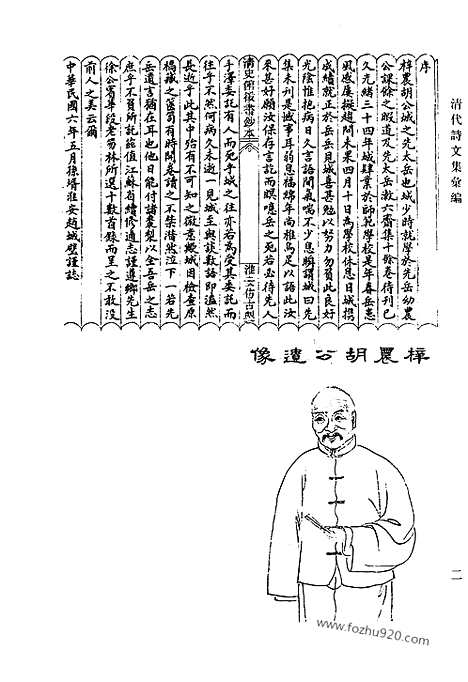 清代詩文集彙編
序
梓農胡公城之先太岳也城少時就學於先岳幼農
公課餘之暇道及先太岳漱六齋集十餘卷待刊已
久光緒三十四年城肄業於師範學校是年春岳患
風感屢擬趨問未果四月十日為學校休息日城攜
成績就正於岳岳見城喜甚勉以努力勿負此良好
光陰惟抱病日久言語間氣喘不少息瞬謂城曰先
集未刊是憾事耳药息福綿年尚稚烏足以語此汝
來甚好願汝保存言訖而瞑噫岳之死若必待先人
清史館徵書鈔本
淮安仿古製
手澤委託有人而死乎城之往亦若為受其委託而
往乎不然何病久未逝一見城至與談數語即溘然
長逝乎此其中殆有不可知之徵意緩城因檢查原
稿藏之篋笥有時開卷讀之不禁潸然泣下一若先
岳遺言猶在耳也他日能付諸棗梨以全吾岳之志
庶乎不負所託茲值江蘇省續修通志謹遵鄉先生
徐公賓華段老笏林所選十數首錄而呈之不敢沒
前人之美云爾
中華民國六年五月孫壻淮安趙城璧謹誌
梓農胡公遺像
二
www.fozhu920.com